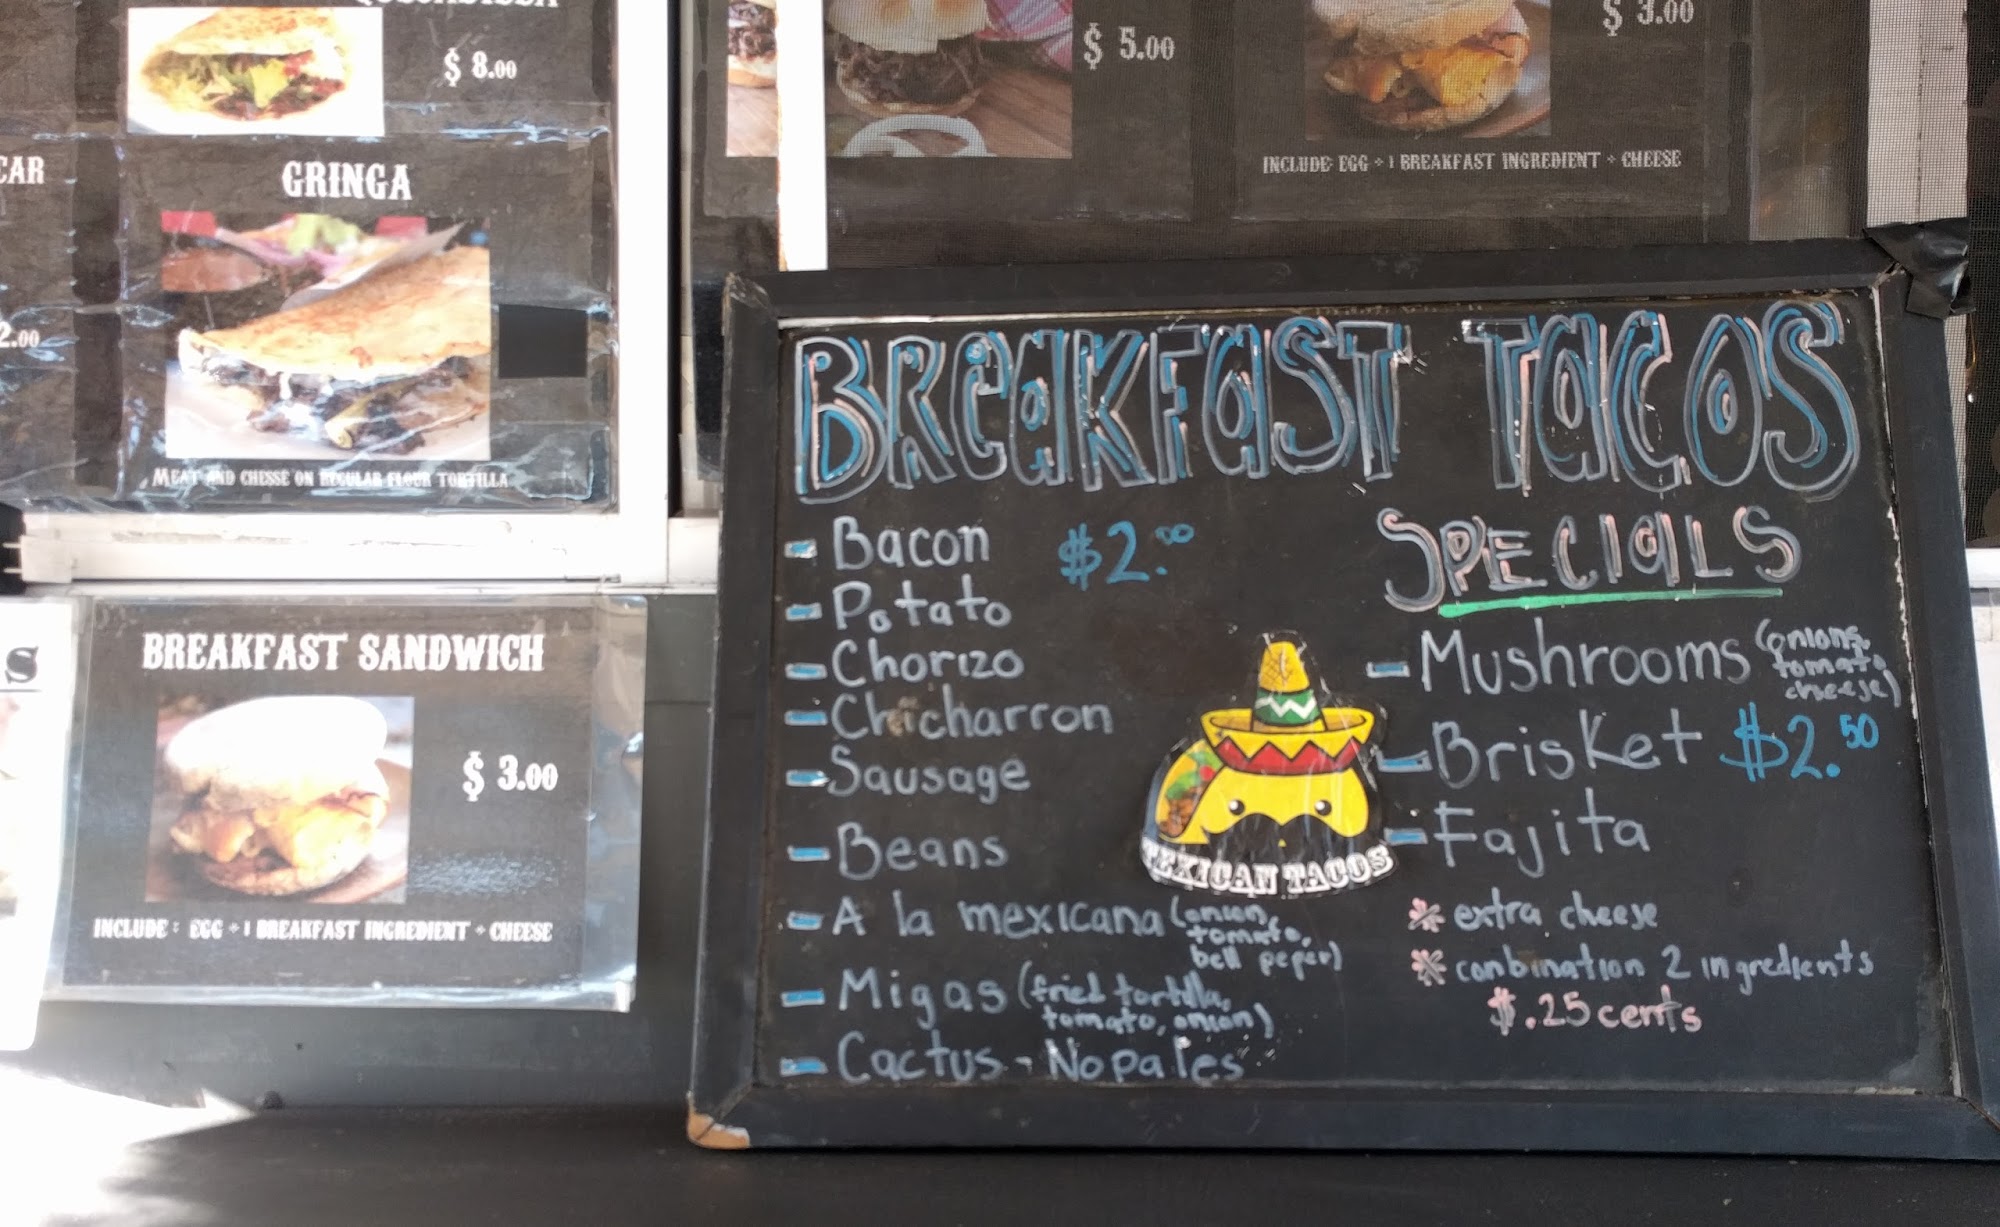 $ 8.00
CAR
GRINGA
2.00
MEAT AND CHESSE ON REGULAR FLOUR TORTILLA
S
BREAKFAST SANDWICH
$ 3.00
INCLUDE : EGG + 1 BREAKFAST INGREDIENT + CHEESE
$ 5.00
$ 3.00
INCLUDE: EGG + 1 BREAKFAST INGREDIENT + CHEESE
BREAKFAST TACOS
- Bacon $2.00
- Potato
- Chorizo
- Chicharron
- Sausage
- Beans
- A la mexicana (onion,
tomato,
bell peper)
- Migas (fried tortilla,
tomato, onion)
- Cactus - Nopales
TEXICAN TACOS
SPECIALS
- Mushrooms (onions,
tomato,
cheese)
- Brisket $2.50
- Fajita
* extra cheese
* conbination 2 ingredients
$.25 cents